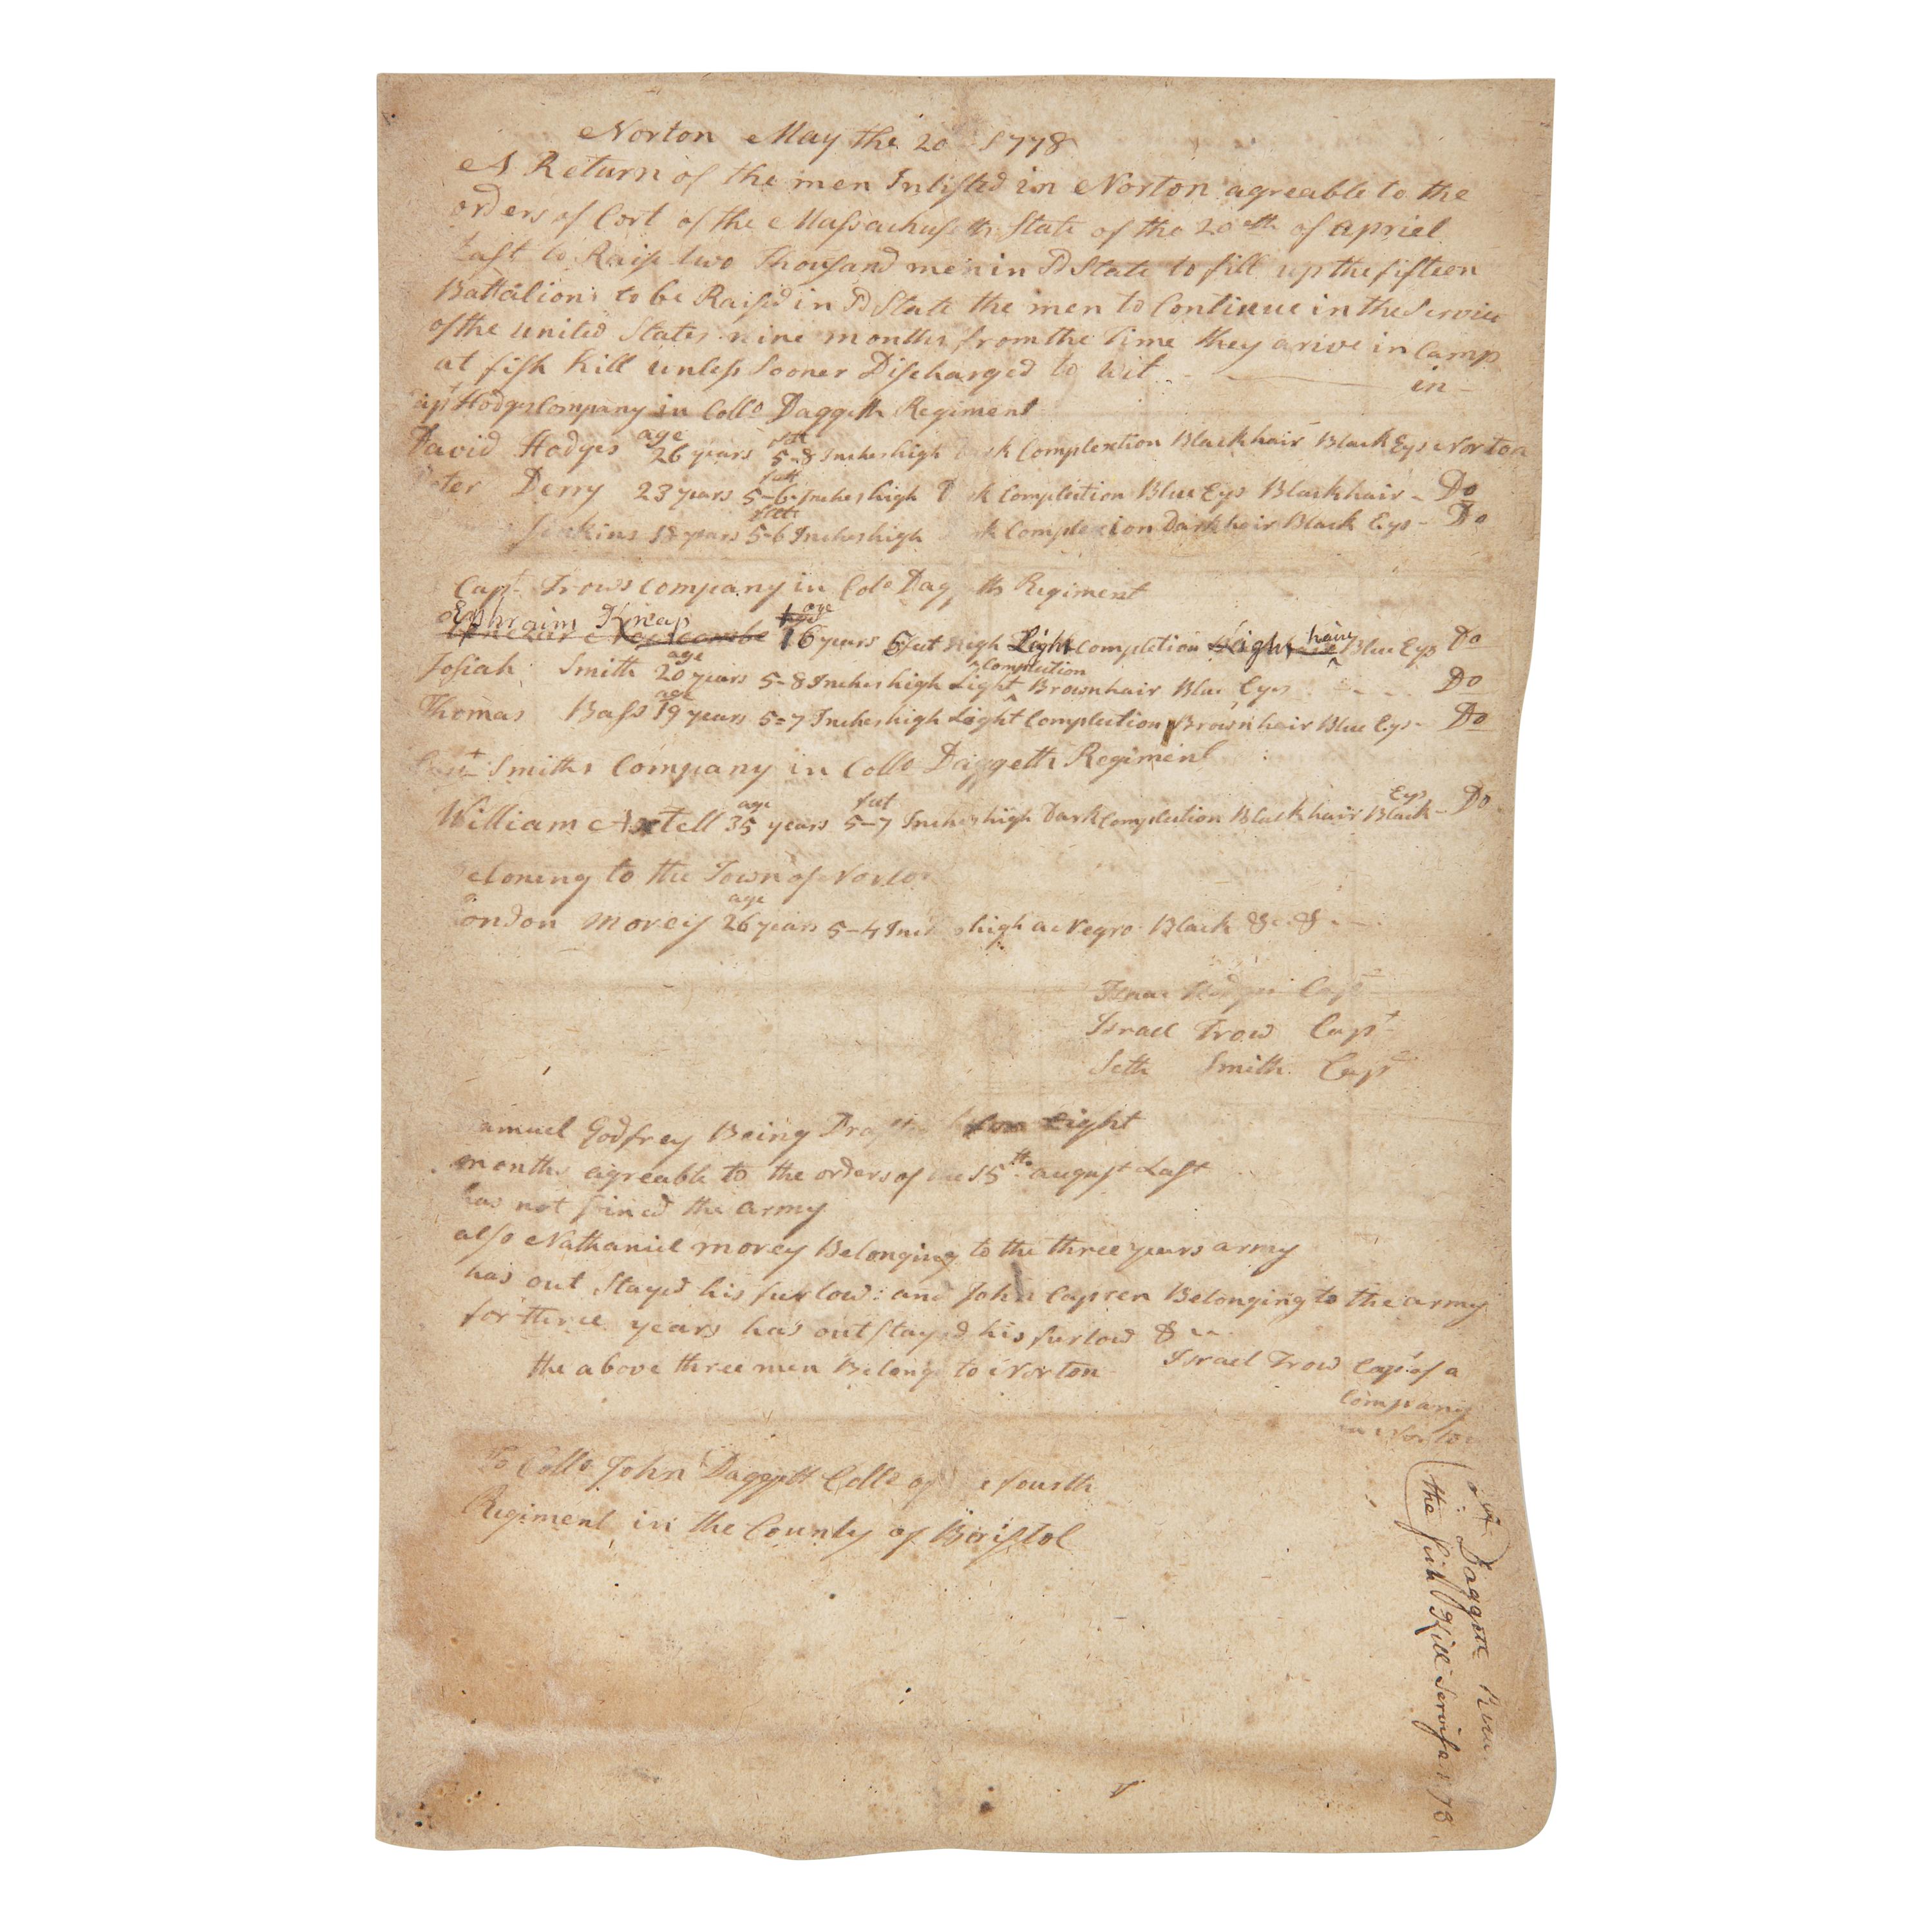 Norton May the 20 1778
A Return of the men Inlisted in Norton agreable to the
orders of Cort of the Massachusetts State of the 20th of Apriel
Last to Raise two Thousand men in sd State to fill up the fifteen
Battalions to be Raised in sd State the men to Continue in the Service
of the united States nine months from the Time they arive in Camp
at fish Kill unless Sooner Discharged to wit in
Capt Hodges Company in Collo Daggetts Regiment
David Hodges age 26 years 5-8 Inches high Complextion Black hair Black Eys Norton
Peter Derry 23 years feet 5-6 Inches high Complextion Blue Eys Black hair - Do
Jenkins 18 years feet 5-6 Inches high Complexion Dark hair Black Eys - Do
Capt Trows company in Colo Regiment
Ephraim Knap age 16 years high Light Complextion hair Blue Eys Do
Josiah Smith age 20 years 5-8 Inches high Light Complextion Brown hair Blue Eyes Do
Thomas Bass age 19 years 5=7 Inches high Light Complextion Brown hair Blue Eys - Do
Capt Smiths Company in Collo Daggetts Regiment
William Axtell age 35 years feet 5-7 Inches high Dark Complextion Black hair Black Eys - Do
Beloning to the Town of Norton
London Morey age 26 years 5-4 Inches high a Negro Black &c &c
Isaac Hodges Capt
Israel Trow Capt
Seth Smith Capt
Samuel Godfrey Being Drafted for Eight
months agreable to the orders of the 15th august Last
has not Joined the army
also Nathaniel morey Belonging to the three years army
has out Stayed his furlow: and John Capren Belonging to the army
for three years has out stayed his furlow &c
the above three men Belong to Norton Israel Trow Capt of a
Company
in Norton
To Collo John Daggett Collo of the fourth
Regiment in the County of Bristol
Daggett
the fish Kill Servise 1778